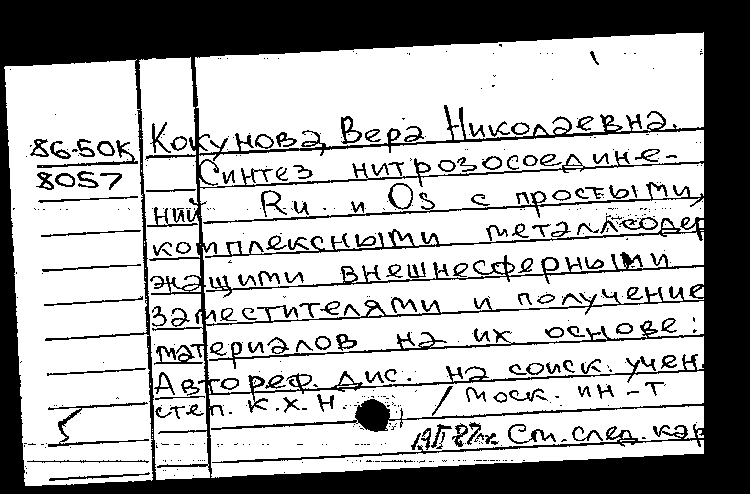 86-50К
8057
Кокунова, Вера Николаевна.
Синтез нитрозосоедине-
ний Ru и Os с простыми,
комплексными металлсодер
жащими внешнесферными
заместителями и получение
материалов на их основе:
Автореф. дис. на соиск. учен.
степ. к.х.н / Моск. ин-т
Cm. след. кар